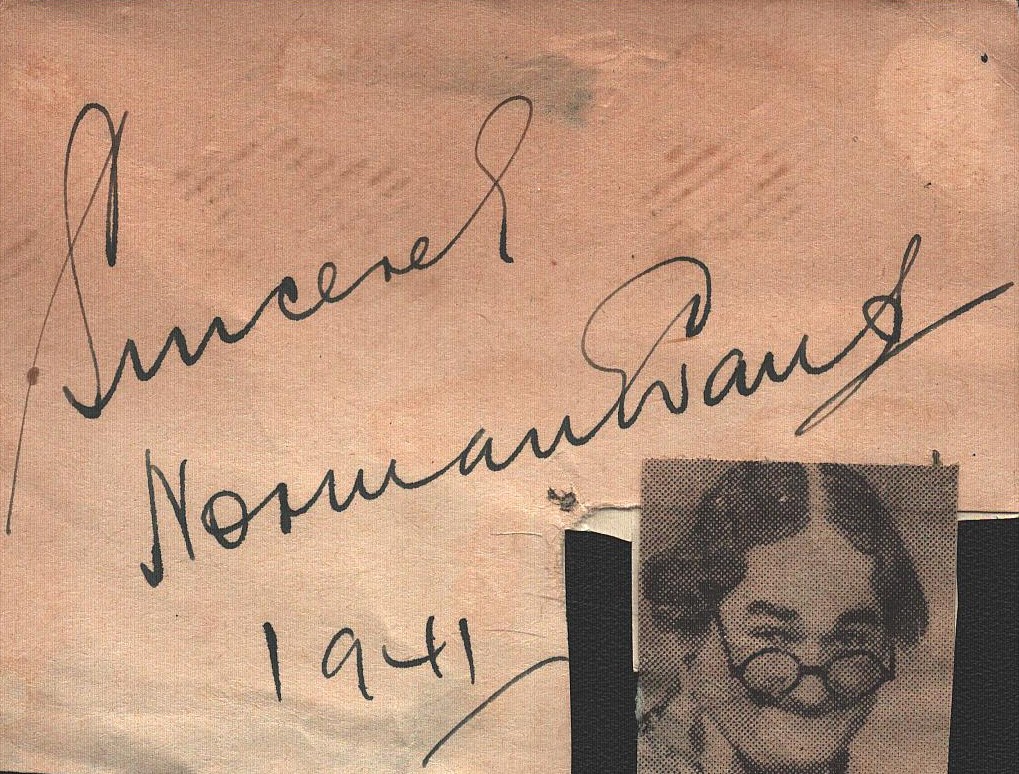 Sincerely
Norman Evans
1941